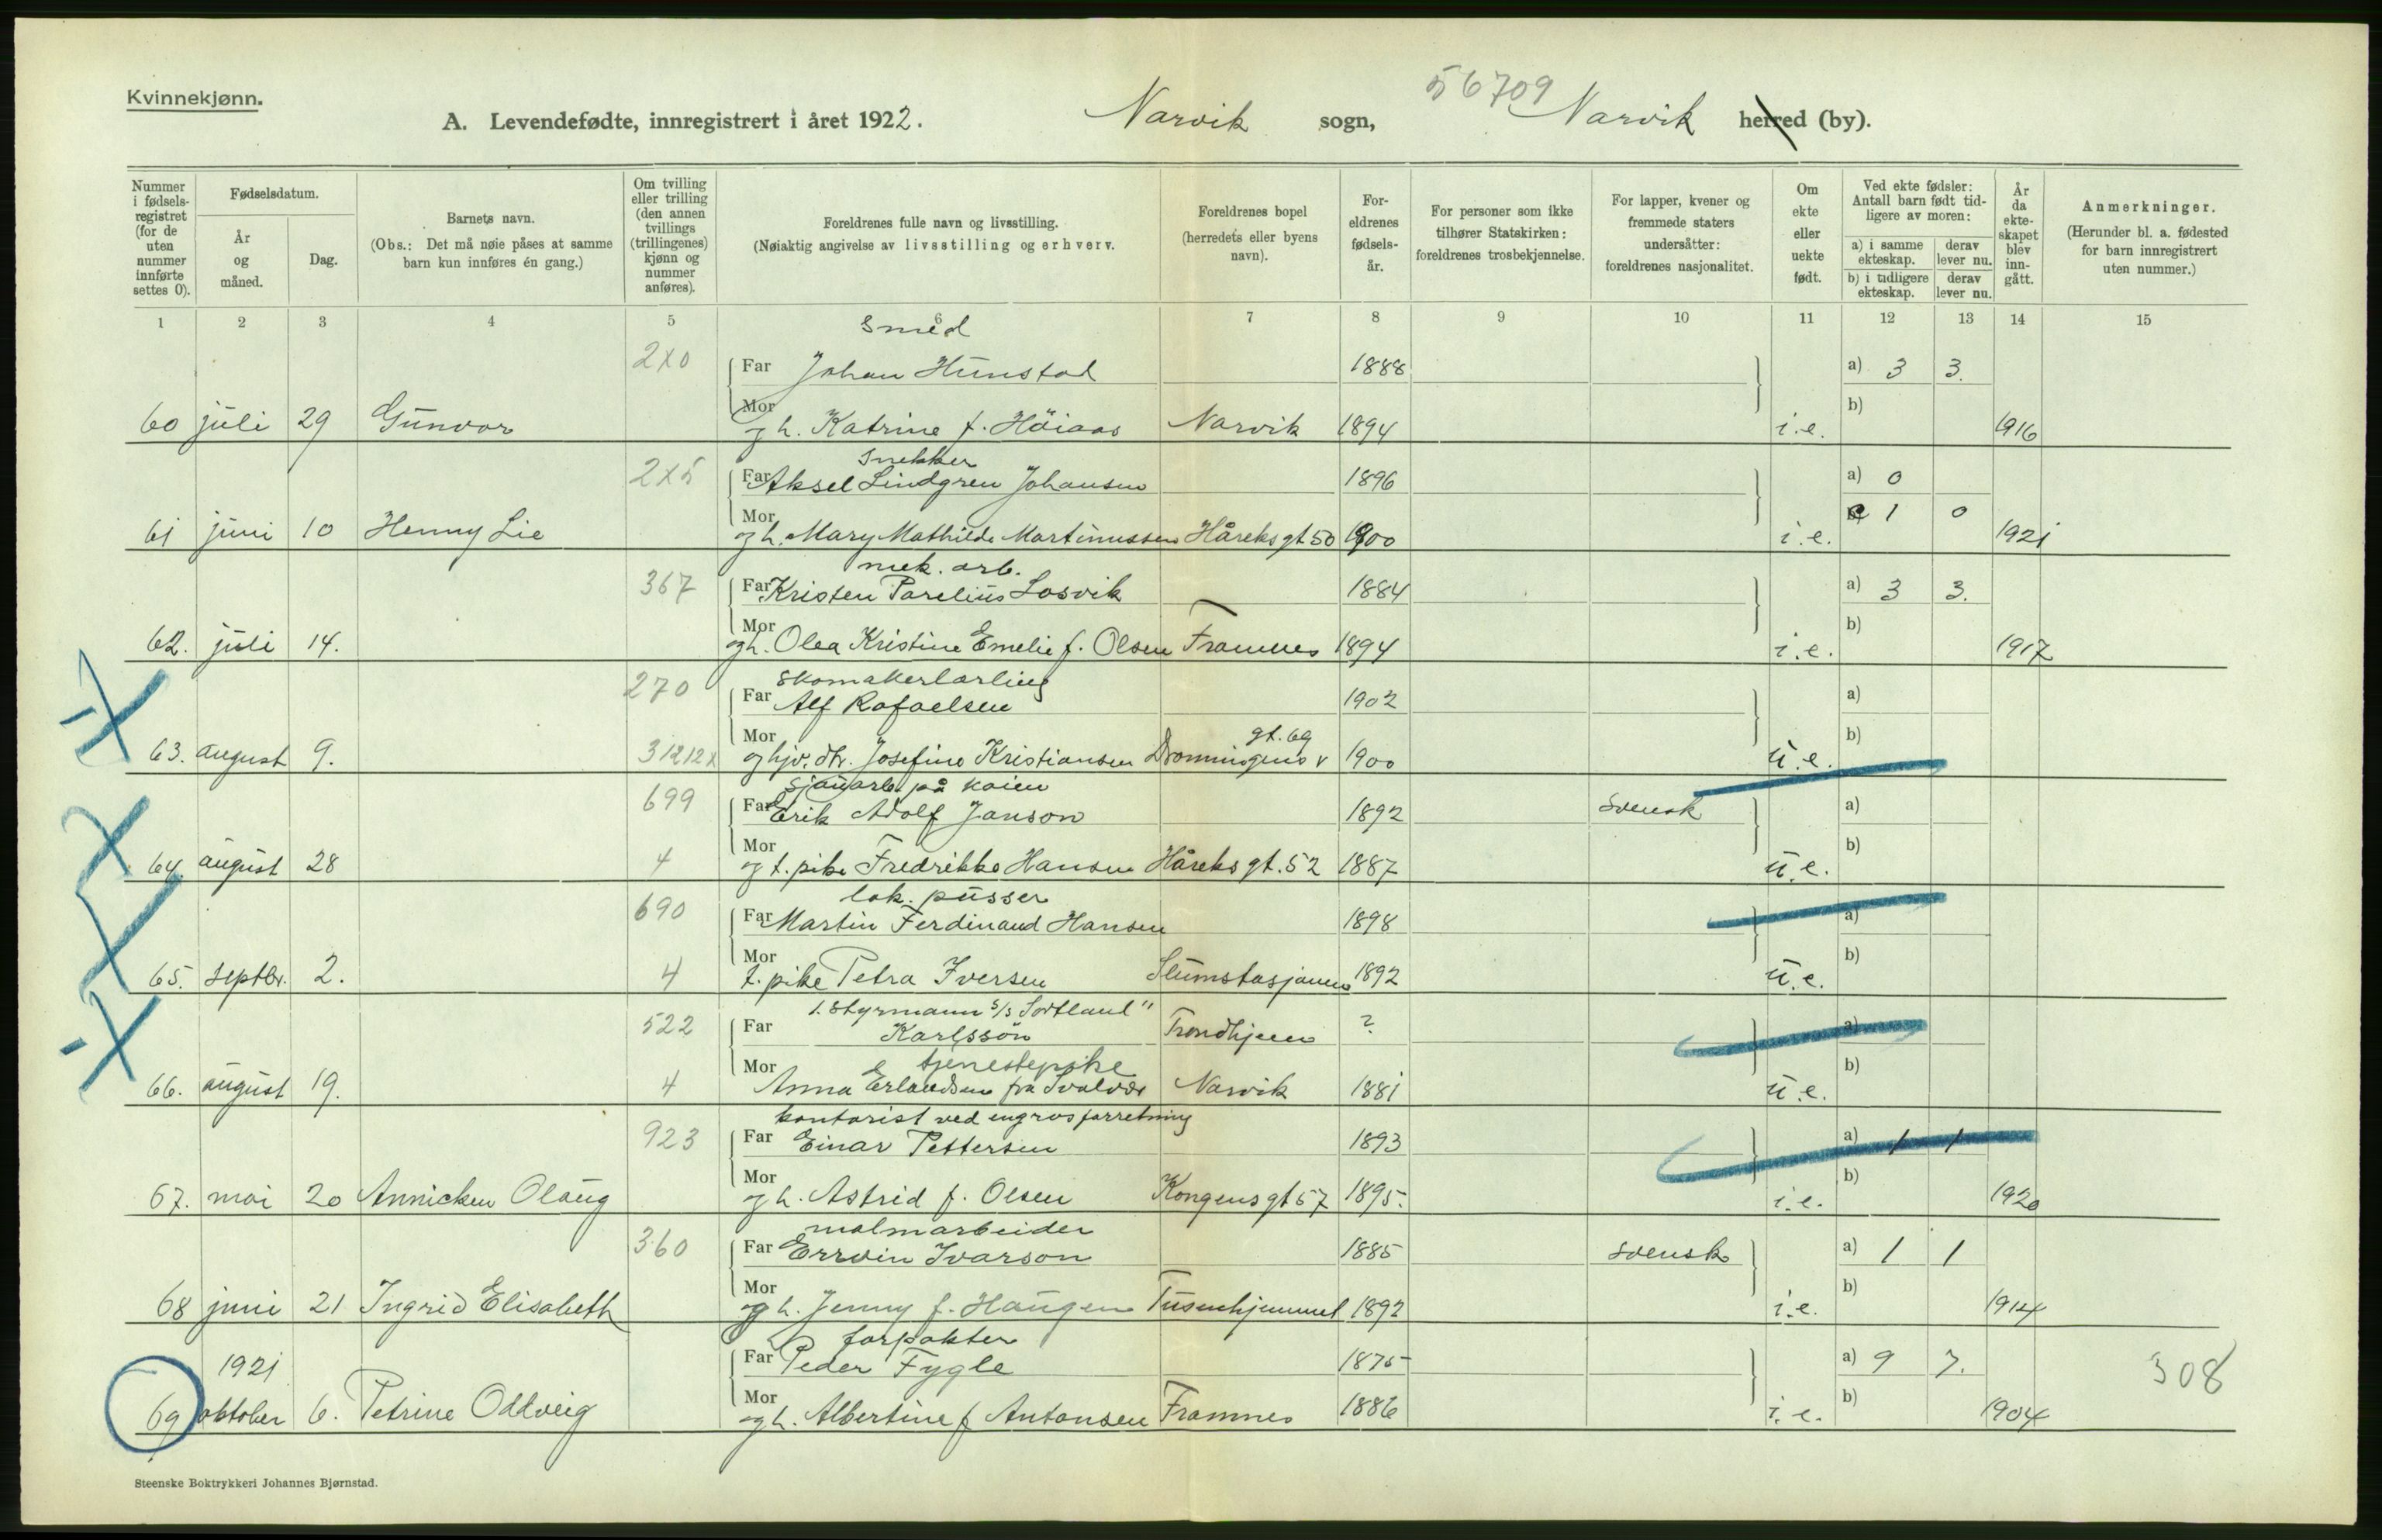 Kvinnekjønn.
56709
A. Levendefødte, innregistrert i året 1922. Narvik sogn, Narvik herred (by).
Nummer i fødselsregistret (for de uten nummer innførte settes 0).
Fødselsdatum.
År og måned.
Dag.
Barnets navn.
(Obs.: Det må nøie påses at samme barn kun innføres én gang.)
Om tvilling eller trilling (den annen tvillings (trillingenes) kjønn og nummer anføres).
Foreldrenes fulle navn og livsstilling.
(Nøiaktig angivelse av livsstilling og erhverv.
Foreldrenes bopel (herredets eller byens navn).
Foreldrenes fødselsår.
For personer som ikke tilhører Statskirken: foreldrenes trosbekjennelse.
For lapper, kvener og fremmede staters undersåtter: foreldrenes nasjonalitet.
Om ekte eller uekte født.
Ved ekte fødsler: Antall barn født tidligere av moren:
a) i samme ekteskap.
derav lever nu.
b) i tidligere ekteskap.
derav lever nu.
År da ekteskapet blev inngått.
Anmerkninger.
(Herunder bl. a. fødested for barn innregistrert uten nummer.)
1 2 3 4 5 6 7 8 9 10 11 12 13 14 15
smed
2x0 Far Johan Hunstad 1888 a) 3 3.
Mor b)
60 juli 29 Gunvor og h. Katrine f. Höiaas Narvik 1894 i.e. 1916
snekker
2x5 Far Aksel Lindgren Johansen 1896 a) 0
Mor b) 1 0
61 juni 10 Henny Lie og h. Mary Mathilde Martinussen Håreksgt 50 1900 i.e. 1921
mek. arb.
367 Far Kristen Parelius Losvik 1884 a) 3 3.
Mor b)
62. juli 14. og h. Olea Kristine Emelie f. Olsen Framnes 1894 i.e. 1917
skomakerlærling
270 Far Alf Rafaelsen 1902 a)
Mor gt. 69 b)
63. august 9. 31212x og hjv. dtr. Josefine Kristiansen Dronningens 1900 u.e.
sjauarb. på kaien
699 Far Erik Adolf Janson 1892 svensk a)
Mor b)
64. august 28 4 og t. pike Fredrikke Hansen Håreks gt. 52 1887 u.e.
lok. pusser
690 Far Martin Ferdinand Hansen 1898 a)
Mor b)
65. septbr. 2. 4 t. pike Petra Iversen Slumstasjonen 1892 u.e.
1. Styrmann s/s Sortland"
522 Far Karlssön Trondhjem ? a)
Mor tjenestepike b)
66. august 19. 4 Anna Erlandsen fra Svolvær Narvik 1881 u.e.
kontorist ved engrosforretning
923 Far Einar Pettersen 1893 a) 1 1
Mor b)
67. mai 20 Annicken Olaug og h. Astrid f. Olsen Kongensgt 57 1895. i.e. 1920
malmarbeider
360 Far Erwin Ivarson 1885 svensk a) 1 1
Mor b)
68 juni 21 Ingrid Elisabeth og h. Jenny f. Haugen Tusenhjemmet 1892 i.e. 1914
forpakter
1921 Far Peder Fygle 1875 a) 9 7. 308
Mor b)
69 oktober 6. Petrine Oddveig og h. Albertine f Antonsen Framnes 1886 i.e. 1904
Steenske Boktrykkeri Johannes Bjørnstad.